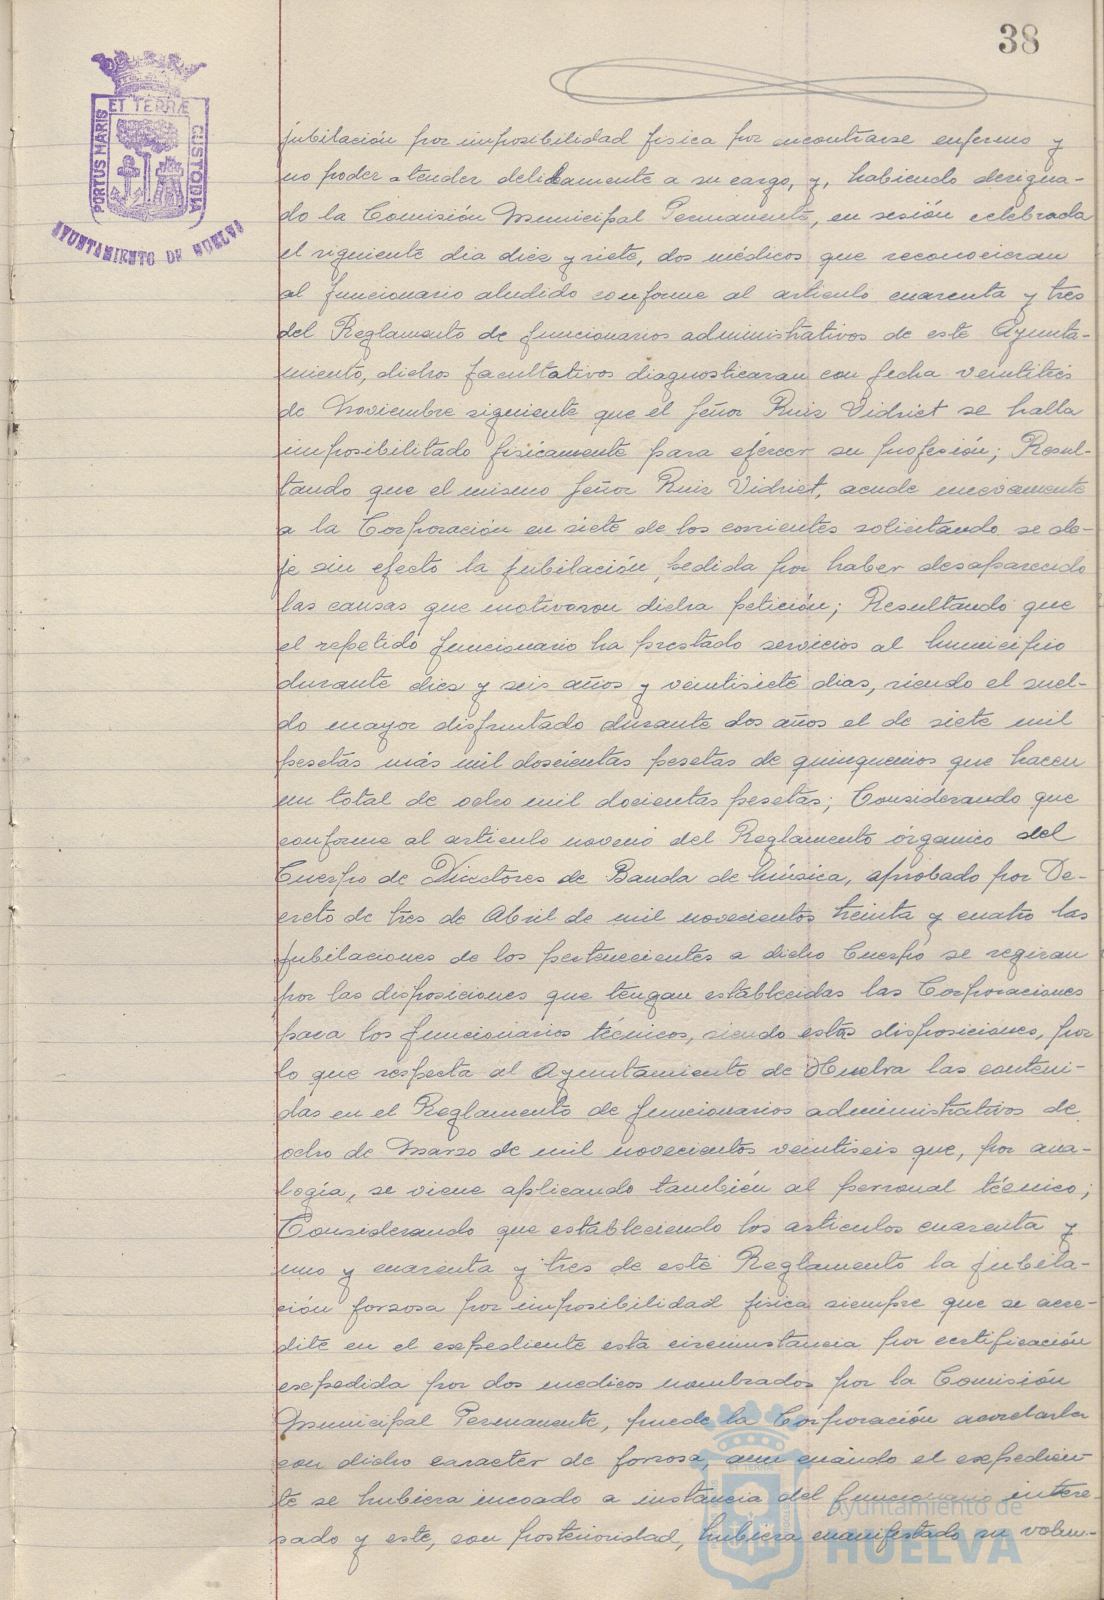 38
ET TERRÆ
PORTUS MARIS
CUSTODIA
AYUNTAMIENTO DE HUELVA
jubilación por imposibilidad física por encontrarse enfermo y
no poder atender debidamente a su cargo, y, habiendo designa-
do la Comisión Municipal Permanente, en sesión celebrada
el siguiente dia diez y siete, dos médicos que reconocieran
al funcionario aludido conforme al articulo cuarenta y tres
del Reglamento de funcionarios administrativos de este Ayunta-
miento, dichos facultativos diagnosticaran con fecha veintitrés
de Noviembre siguiente que el señor Ruiz Vidriet se halla
imposibilitado fisicamente para ejercer su profesión; Resul-
tando que el mismo señor Ruiz Vidriet, acude nuevamente
a la Corporación en siete de los corrientes solicitando se de-
je sin efecto la jubilación, pedida por haber desaparecido
las causas que motivaron dicha petición; Resultando que
el repetido funcionario ha prestado servicios al municipio
durante diez y seis años y veintisiete dias, siendo el suel-
do mayor disfrutado durante dos años el de siete mil
pesetas más mil doscientas pesetas de quinquenios que hacen
un total de ocho mil docientas pesetas; Considerando que
conforme al articulo noveno del Reglamento órganico del
Cuerpo de Directores de Banda de Música, aprobado por De-
creto de tres de Abril de mil novecientos treinta y cuatro las
jubilaciones de los pertenecientes a dicho Cuerpo se regiran
por las disposiciones que tengan establecidas las Corporaciones
para los funcionarios técnicos, siendo estas disposiciones, por
lo que respecta al Ayuntamiento de Huelva las conteni-
das en el Reglamento de funcionarios administrativos de
ocho de Marzo de mil novecientos veintiseis que, por ana-
logía, se viene aplicando también al personal técnico;
Considerando que estableciendo los articulos cuarenta y
uno y cuarenta y tres de este Reglamento la jubila-
ción forzosa por imposibilidad física siempre que se acre-
dite en el expediente esta circunstancia por certificación
expedida por dos medicos nombrados por la Comisión
Municipal Permanente, puede la Corporación acordarla
con dicho caracter de forzosa, aun cuándo el expedien-
te se hubiera incoado a instancia del funcionario intere-
sado y este, con posterioridad, hubiera manifestado su volun-
Ayuntamiento de
HUELVA